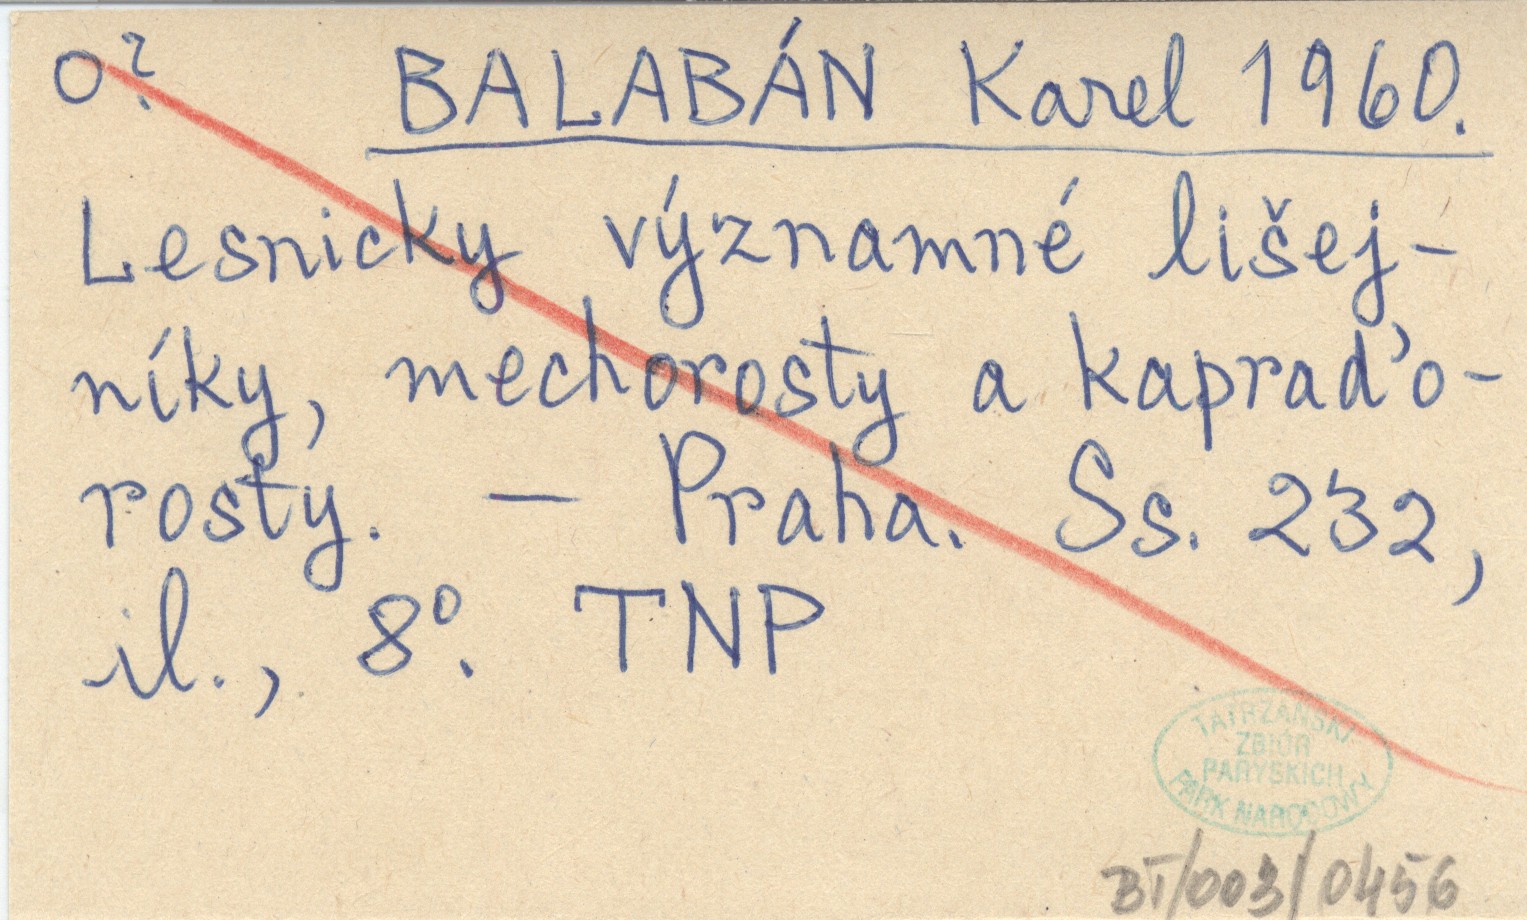 o? BALABÁN Karel 1960.
Lesnicky významné lišej-
níky, mechorosty a kapraďo-
rosty. — Praha. Ss. 232,
il., 8°. TNP
TATRZAŃSKI
ZBIÓR
PARYSKICH
PARK NARODOWY
BT/003/0456